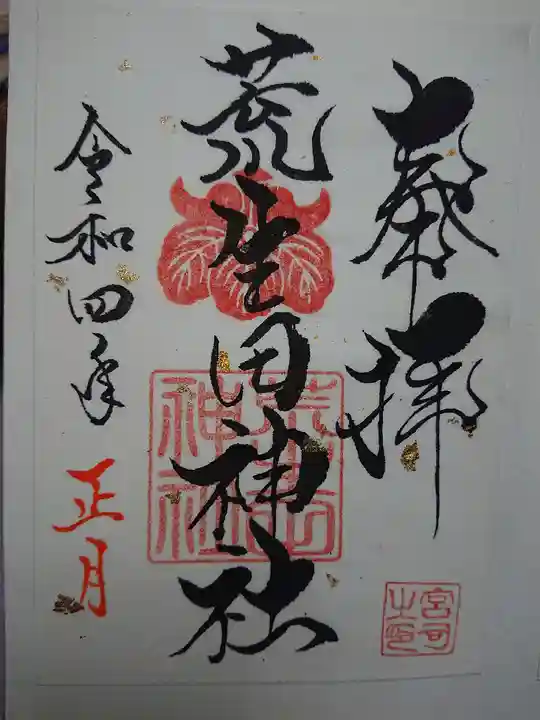 奉拝
荒生田神社
令和四年
正月
荒生田神社
宮司之印